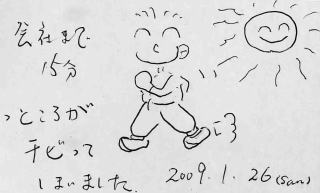 会社まで
15分
っところが
チビって
しまいました.
2009.1.26(san)